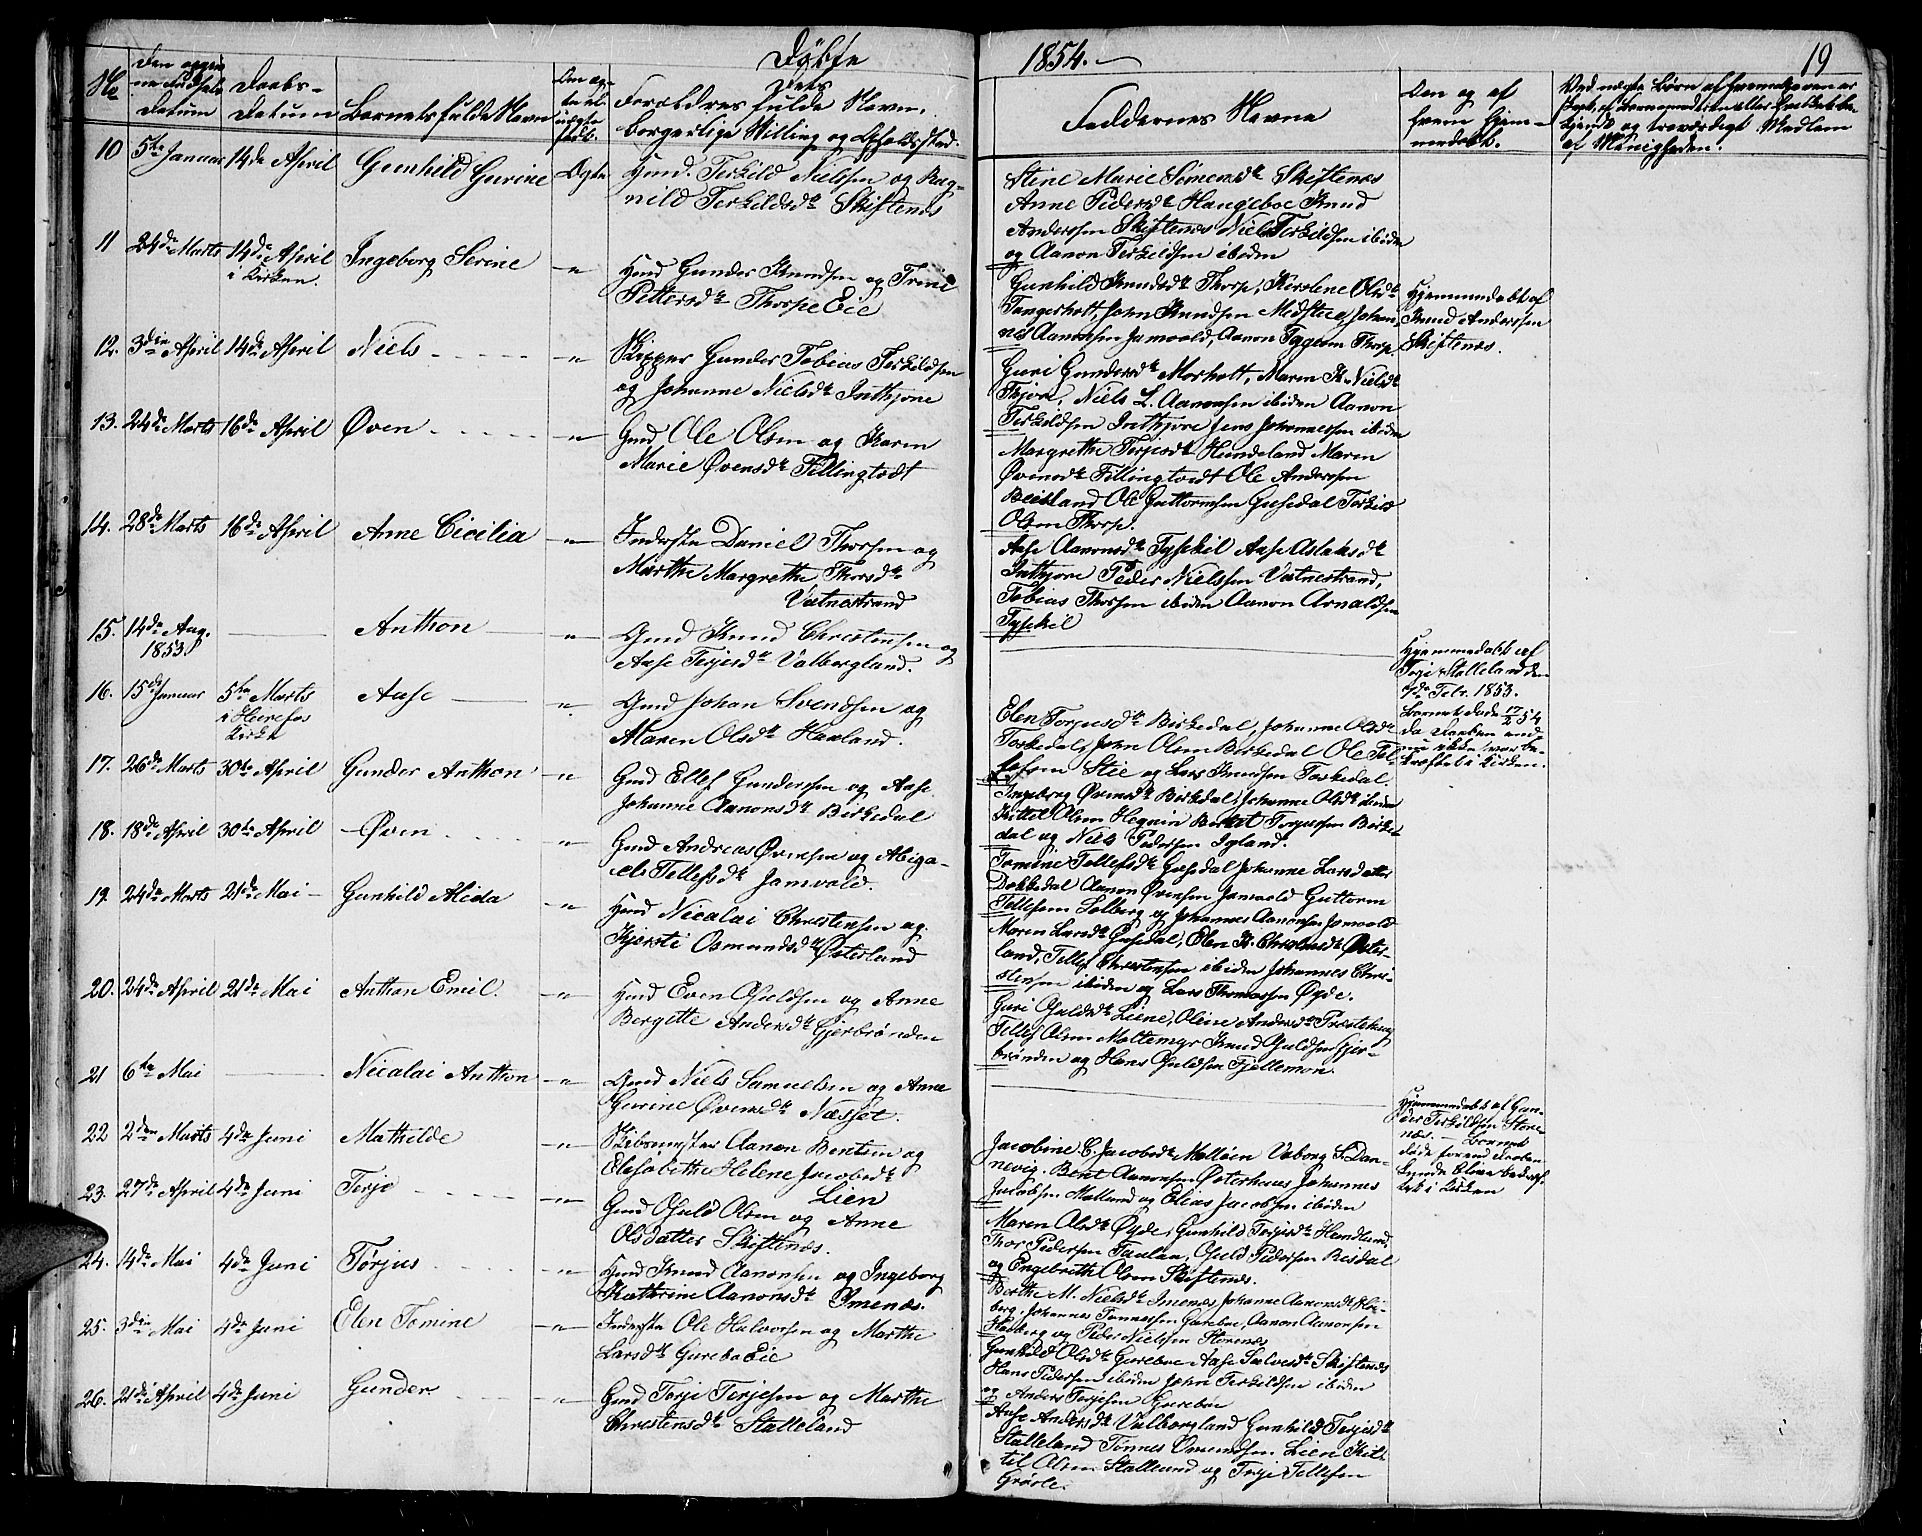 Døbte
1854.
19
No
Daabs-
Datum
Barnets fulde Navn
Forældrenes fulde Navn,
borgerlige Stilling og Opholdssted.
Faddernes Navne
Om og af
hvem hjem-
medøbt.
10 5te Januar 14de April Gunhild Gurine Ægte Gmd. Terkild Nielsen og Rag-
nild Terkildsdtr Skiftenes
Stine Marie Simonsdtr Skiftenes
Anne Pedersdtr Haugeboe Knud
Anderssen Skiftenes Niels Terkildsen ibiden
og Aanon Terkildsen ibiden
11 24de Marts 14de April
i Kirken.
Ingeborg Serine
Gmd Gunder Knudsen og Trine
Pettersdtr Thorpe Eie
Gunhild Knudsdtr Thorp, Kirstene Olsdtr
Tangerhott, John Knudsen Medstie, Johan-
nes Aanonsen Jamvold, Aanon Tagesen Thorp.
Hjemmedøbt af
Knud Anderssen
Skiftenes.
12. 3die April 14de April Niels
Skipper Gunder Tobias Terkildsen
og Johanne Nielsdtr Inthjore
Guri Gundersdtr Morholt, Maren K. Nielsdtr
Thjore, Niels L. Aanonsen ibiden Aanon
Terkildsen Inthjore Jens Johannessen ibiden
13. 24de Marts 16de April Øven
Gmd Ole Olsen og Karen
Marie Øvensdtr Fillingtvedt
Margrethe Terjesdtr Hundeland Maren
Øvensdtr Fillingtvedt Ole Anderssen
Beisland Ole Guttormsen Gusedal Terkild
Olsen Thorp.
14. 28de Marts 16de April Anne Cicilia
Inderste Daniel Thorsen og
Marthe Margrethe Thorsdtr
Vatnestrand
Aase Aanonsdtr Tysekil Aase Aslaksdtr
Inthjore Peder Nielssen Vatnestrand,
Tobias Thorsen ibiden Aanon Arnoldsen
Tysekil
15. 14de Aug.
1853
Anthon
Gmd Knud Christensen og
Aase Terjesdtr Valbergland.
Hjemmedøbt af
Terje Stalleland den
7de Febr. 1853.
Barnet døde 17/2 54
da Daaben end-
nu ikke var be-
kræftet i Kirken.
16. 15de Januar 5te Marts
i Herefos
Kirke
Aase
Gmd Johan Svendsen og
Maren Olsdtr Haaland.
Elen Torjusdtr Birkedal, Johanne Olsdtr
Toskedal, John Olsen Birkedal Ole Tel-
lefsen Stie og Lars Knudsen Toskedal.
17. 26de Marts 30te April Gunder Anthon
Gmd Ellef Gundersen og Aase
Johanne Aanonsdtr Birkedal
Ingeborg Øvensdtr Birkedal, Johanne Olsdtr ibiden
Kittel Olsen Hegnin Bertel Torjussen Birke-
dal og Niels Pedersen Igland.
18. 18de April 30te April Øven
Gmd Andreas Øvensen og Abiga-
els Tellefsdtr Jamvold.
Tomine Tellefsdtr Gusedal Johanne Larsdatter
Dokkedal Aanon Øvensen Jamvold Guttorm
Tellefsen Solberg og Johannes Aanonsen Jamvold
19. 24de Marts 21de Mai Gunhild Alida
Gmd Nicolai Christensen og
Kjersti Osmundsdtr Østerland
Maren Larsdtr Gusedal, Elen K. Christensdtr Øster-
land, Tellef Christensen ibiden Johannes Chri-
stensen ibiden og Lars Thomassen Øyde.
20. 24de April 21de Mai Anthon Emil.
Gmd Even Osuldsen og Anne
Bergette Andersdtr Gjerbrønden
Guri Osuldsdtr Liene, Oline Andersdtr Præstehaug
Tellef Olsen Moltemyr Knud Osuldsen Gjer-
brønden og Hans Osuldsen Fjellemon.
21 6te Mai Nicolai Anthon
Gmd Niels Samuelsen og Anne
Gurine Øvensdtr Næsset.
Hjemmedøbt af Gun-
der Terkildsen Store-
næs. – Barnet
døde forend Daaben
kunde blive bekræf-
tet i Kirken
22 2den Marts 4de Juni Mathilde
Skibsmester Aanon Bentsen og
Elisabethe Helene Jacobsdtr
Lien
Jacobine C. Jacobsdtr Molleien Vaborg S. Dan-
nevig. Bent Aanonsen Østerhuus Johannes
Jacobsen Molland og Elias Jacobsen ibiden
23. 27de April 4de Juni Terje
Gmd Osuld Olsen og Anne
Olsdatter Skiftenæs.
Maren Olsdtr Øyde, Gunhild Terjesdtr Hundland,
Thor Pedersen Taulan, Osuld Pedersen Beisdal
og Engebreth Olsen Skiftenæs.
24. 14de Mai 4de Juni Tørjus
Gmd Knud Aanonsen og Ingeborg
Kathrine Aanonsdtr Imenæs.
Berthe M. Nielsdtr Imenæs, Johanne Aanonsdtr Klei-
berg, Johannes Tønnessen Gureboe, Aanon Aanonsen
Kleiberg og Peder Nielsen Storenæs
25. 3die Mai 4de Juni Elen Tomine
Inderste Ole Halvorsen og Marthe
Larsdtr Gurebo Eie
Gunhild Olsdtr Gureboe Aase Salvesdtr Skiftenæs
Hans Pedersen ibiden John Terkildsen ibiden
og Anders Terjesen Gureboe
26. 21de April 4de Juni Gunder
Gmd Terje Terjesen og Marthe
Christensdtr Stalleland
Aase Andersdtr Valborgland Gunhild Terjesdtr
Stalleland Tønnes Osmundsen Lien Kit-
til Olsen Stalleland og Terje Tellefsen
Grøsle.